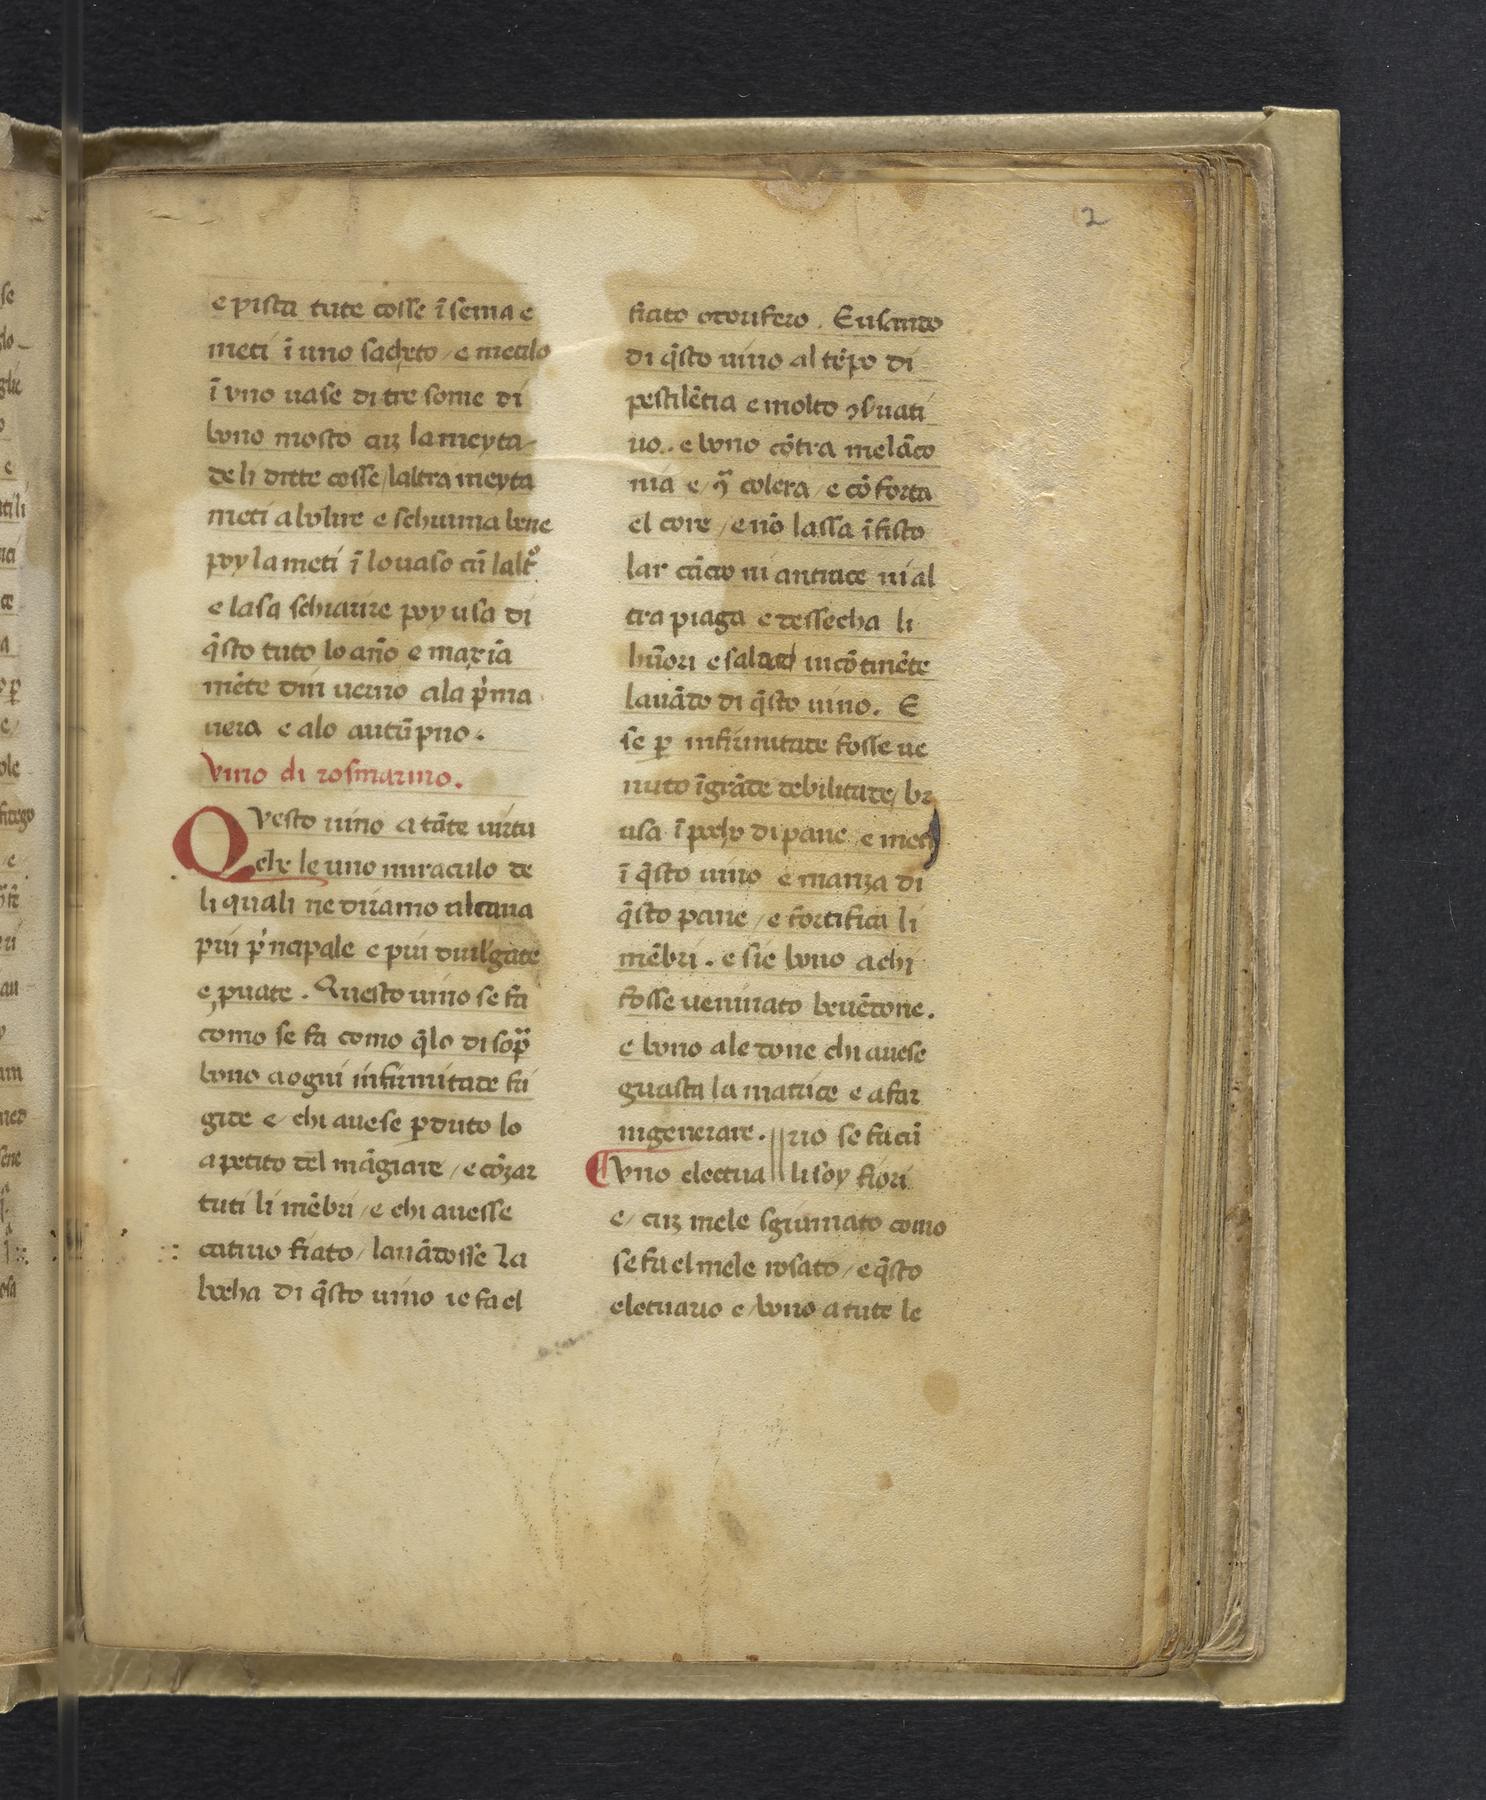 2
e pista tute cosse ĩsema e
meti ĩ uno sacheto / e metilo
ĩ vno uase di tre some di
bono mosto cuʒ la meyta
de li ditte cosse / laltra meyta
meti a bolire e schiuma bene
poy la meti ĩ lo uaso cũ laltᵒ
e lasa schiarire poy usa di
q̃sto tuto lo año e maxia
mẽte din uerno ala pͥma
uera e alo autũpno.
Vino di rosmarino.
Questo uino a tãte uirtu
che le uno miraculo de
li quali ne diramo alcuna
piu pͥncipale e piu diuilgate
e ꝓuate. Questo uino se fa
como se fa como q̃lo di sop̃
bono a ogni infirmitate fri
gide e / chi auese ꝑduto lo
apetito del mãgiare / e cõʒar
tuti li mẽbri / e chi auesse
catiuo fiato / lauãdosse la
bocha di q̃sto uino ie fa el
fiato odorifero. E usando
di q̃sto uino al tẽpo di
pestilẽtia e molto ꝯseruati
uo.. e bono cõtra melãco
nia e / ꝯ̃ colera / e cõforta
el core / e nõ lassa ĩfisto
lar cãcro ni antrace ni al
tra piaga e dessecha li
hũori e salad incõtinẽte
lauãdo di q̃sto uino. E
se ꝑ infirmitate fosse ue
nuto ĩ grãde debilitate / br
usa ĩ pocho di pane e meti
ĩ q̃sto uino e manza di
q̃sto pane / e fortifica li
mẽbri. e sie bono a chi
fosse ueninato beuẽdone.
e bono ale done chi auese
guasta la matrice e a far
ingenerare. || rio se fa cũ
Vno electua || li soy fiori
e / cuʒ mele sgiumato como
se fa el mele rosato / e q̃sto
eletuario e / bono a tute le